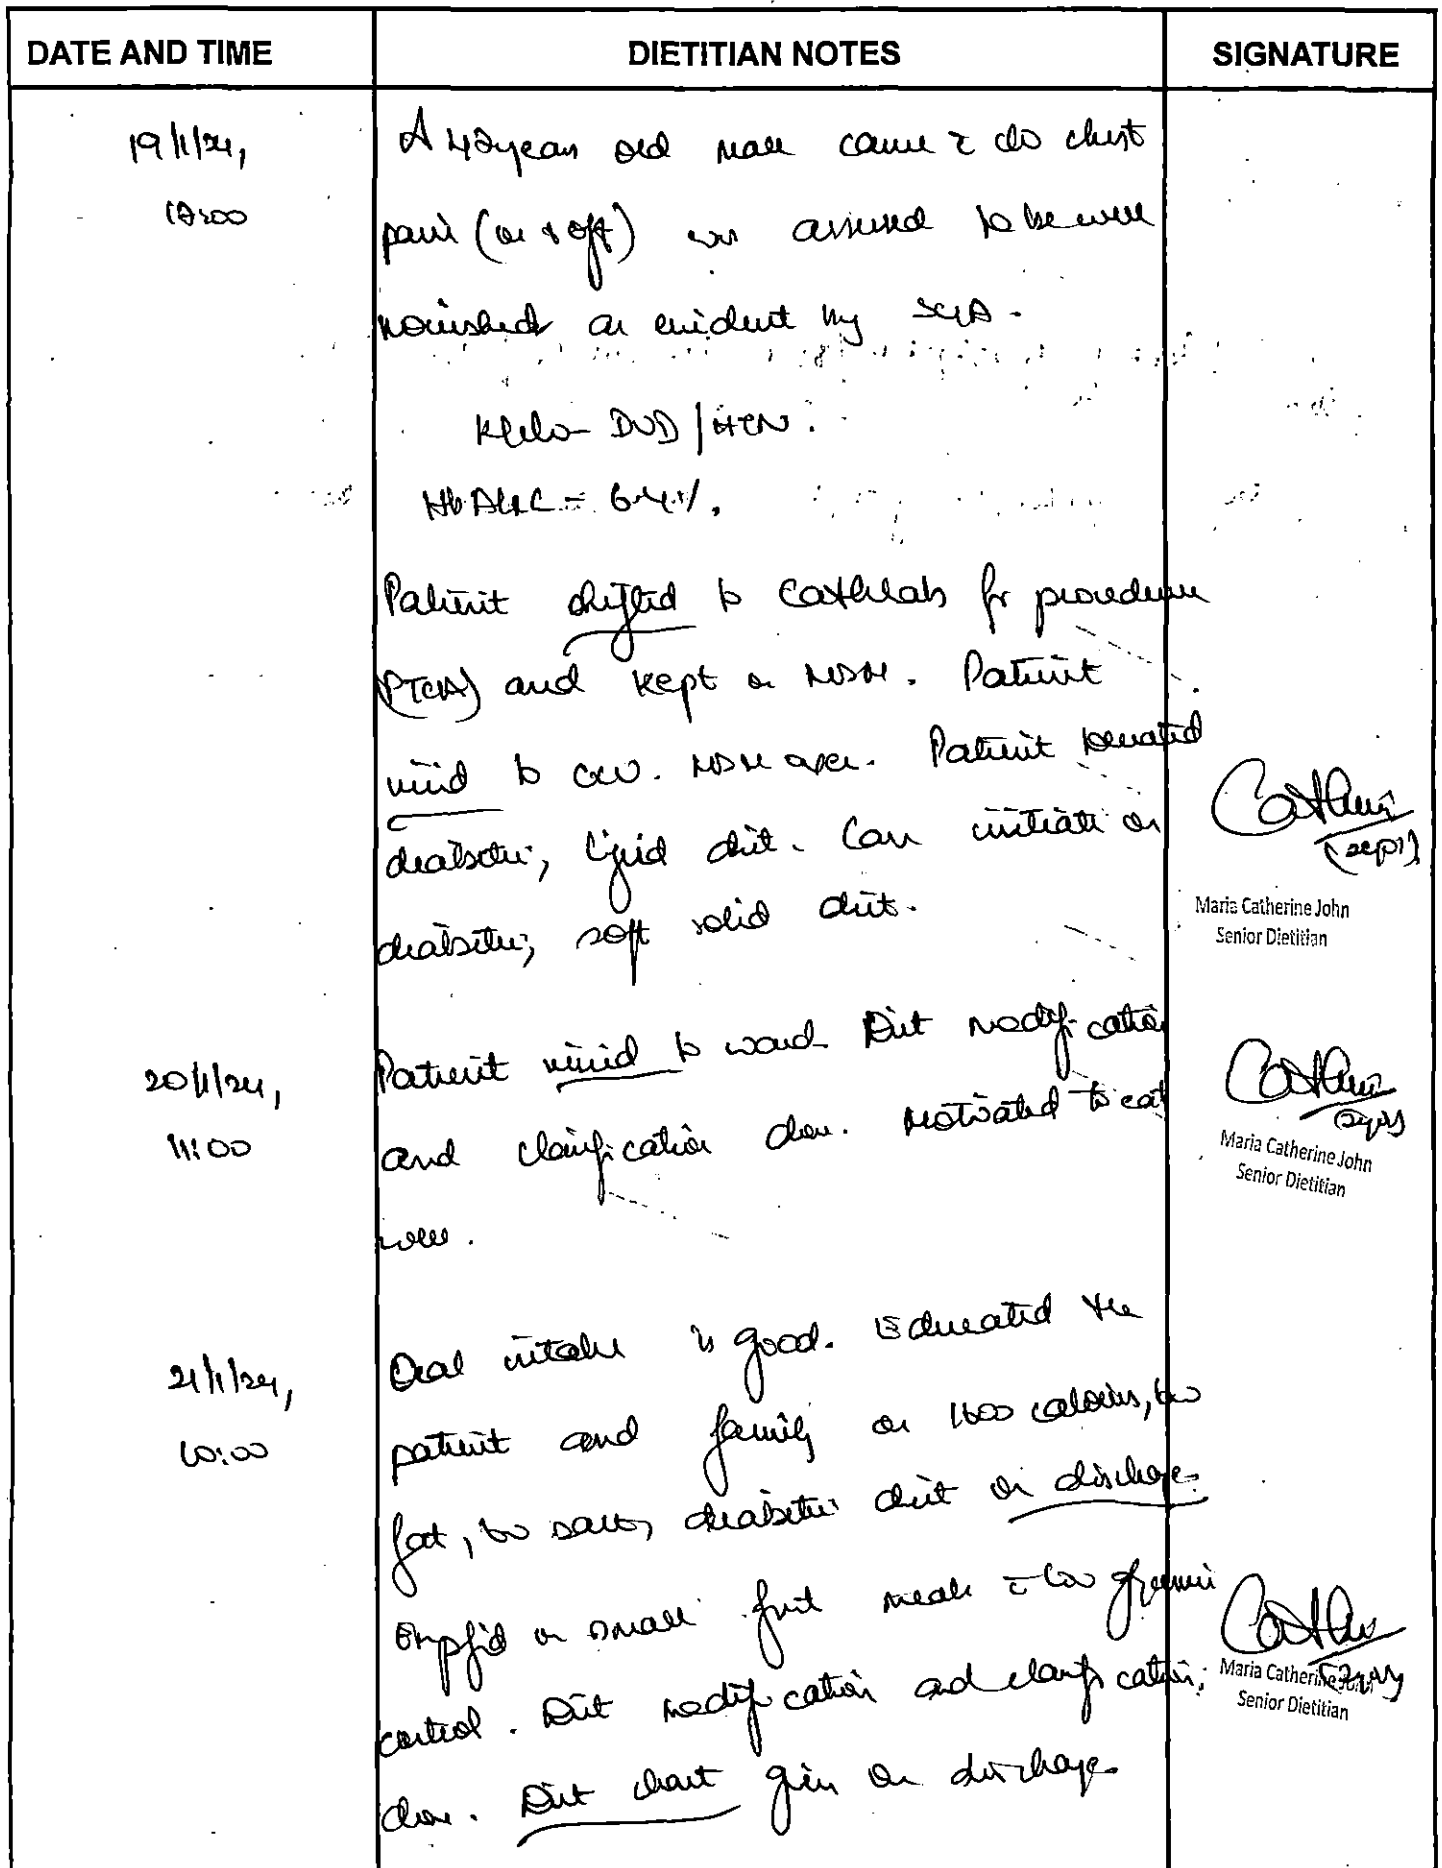 DATE AND TIME DIETITIAN NOTES SIGNATURE
19/1/24, A 42 year old male came c̄ c/o chest
pain (on & off) was assessed to be well
nourished as evident by SGA.
DVD / HTN.
HbA1C = 6.4%.
Patient shifted to cathlab for procedure
(PTCA) and kept on NBM. Patient
to NBM over. Patient tolerated
diabetic, liquid diet. Can initiate on
diabetic, soft solid diet.
Maria Catherine John
Senior Dietitian
20/1/24, Patient to ward. Diet modification
11:00 and clarification done. Motivated to eat
well.
Maria Catherine John
Senior Dietitian
21/1/24, Oral intake is good. Educated the
10:00 patient and family on calories, low
fat, low salt, diabetic diet on discharge.
on small meals c̄ low
control. Diet modification and clarification
Maria Catherine John
Senior Dietitian
done. Diet chart given on discharge